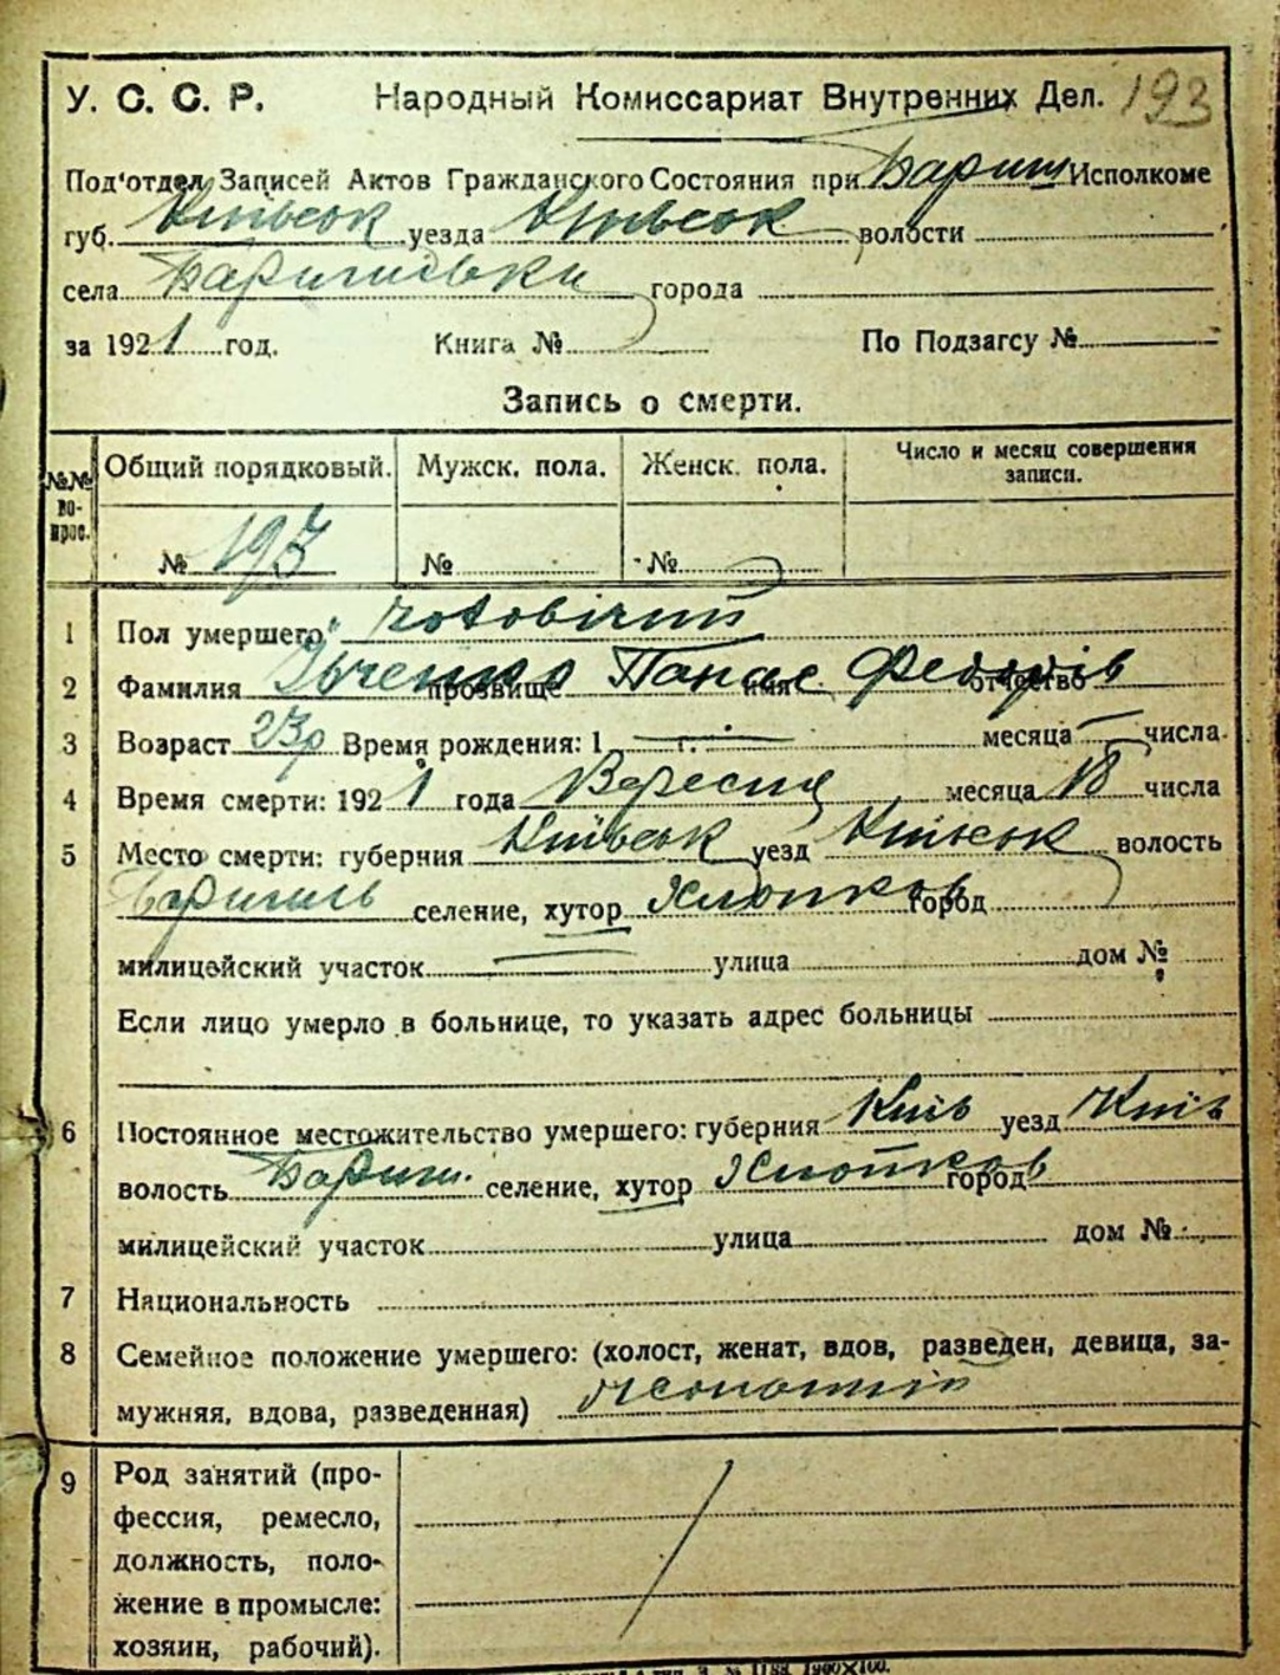 У. С. С. Р. Народный Комиссариат Внутренних Дел. 193
Под'отдел Записей Актов Гражданского Состояния при Бариш Исполкоме
губ. Київськ уезда Київськ волости
села Баришівки города
за 1921 год. Книга № По Подзагсу №
Запись о смерти.
№№ вопрос. Общий порядковый. Мужск. пола. Женск. пола. Число и месяц совершения записи.
№ 193 № №
1 Пол умершего чоловічий
2 Фамилия прозвище Панас имя Федорів отчество
3 Возраст 23р Время рождения: 1 г. месяца числа
4 Время смерти: 1921 года Вересня месяца 18 числа
5 Место смерти: губерния Київськ уезд Київськ волость
Баришь селение, хутор Хлопков город
милицейский участок улица дом №
Если лицо умерло в больнице, то указать адрес больницы
6 Постоянное местожительство умершего: губерния Київ уезд Київ
волость Бариш. селение, хутор Хлопков город
милицейский участок улица дом №
7 Национальность
8 Семейное положение умершего: (холост, женат, вдов, разведен, девица, за-
мужняя, вдова, разведенная) жонатий
9 Род занятий (про-
фессия, ремесло,
должность, поло-
жение в промысле:
хозяин, рабочий).